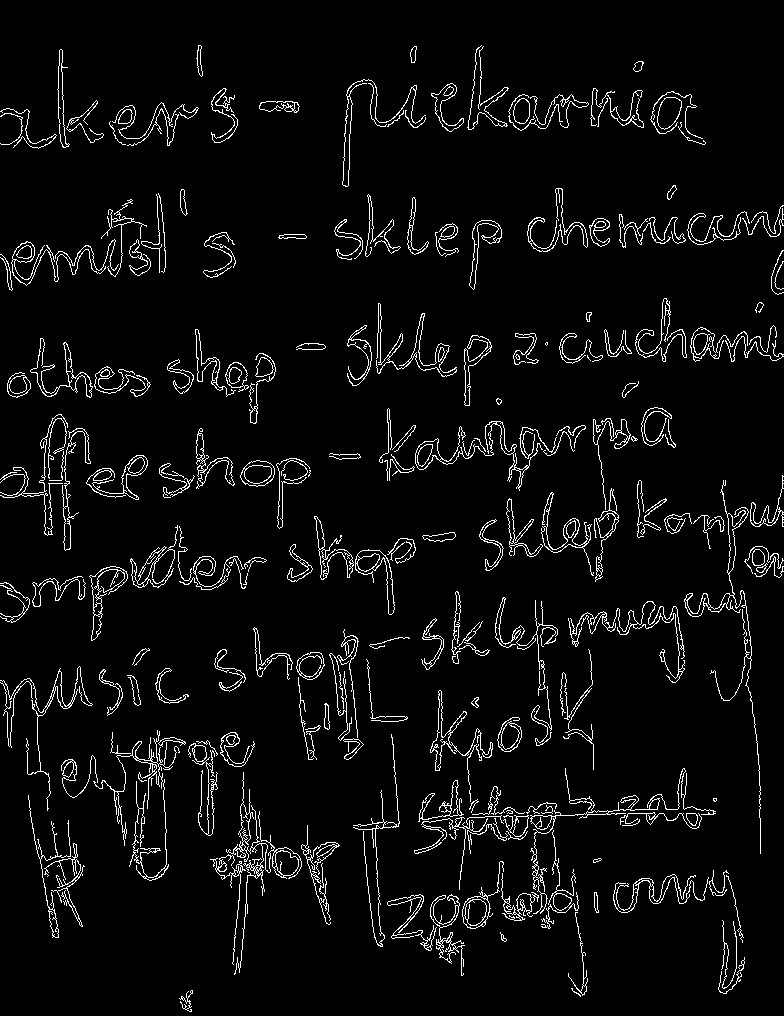 aker's - piekarnia
hemist's - sklep chemiczny
othes shop - sklep z ciuchami
offeeshop - kawiarnia
omputer shop - sklep komputerowy
music shop - sklep muzyczny
- kiosk
sklep z zab.